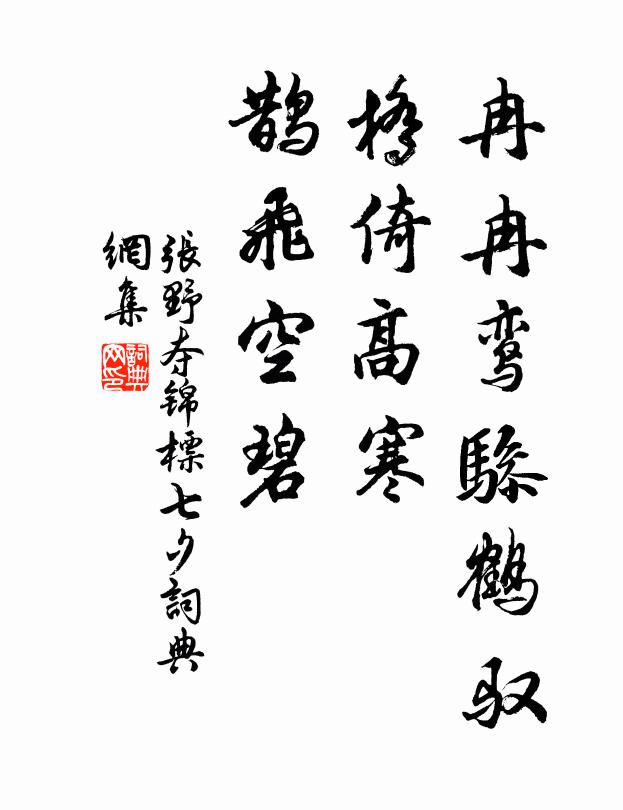 冉冉鸾骖鹤驭
桥倚高寒
鹊飞空碧
張野夺锦標七夕詞典
網集
詞典
网印